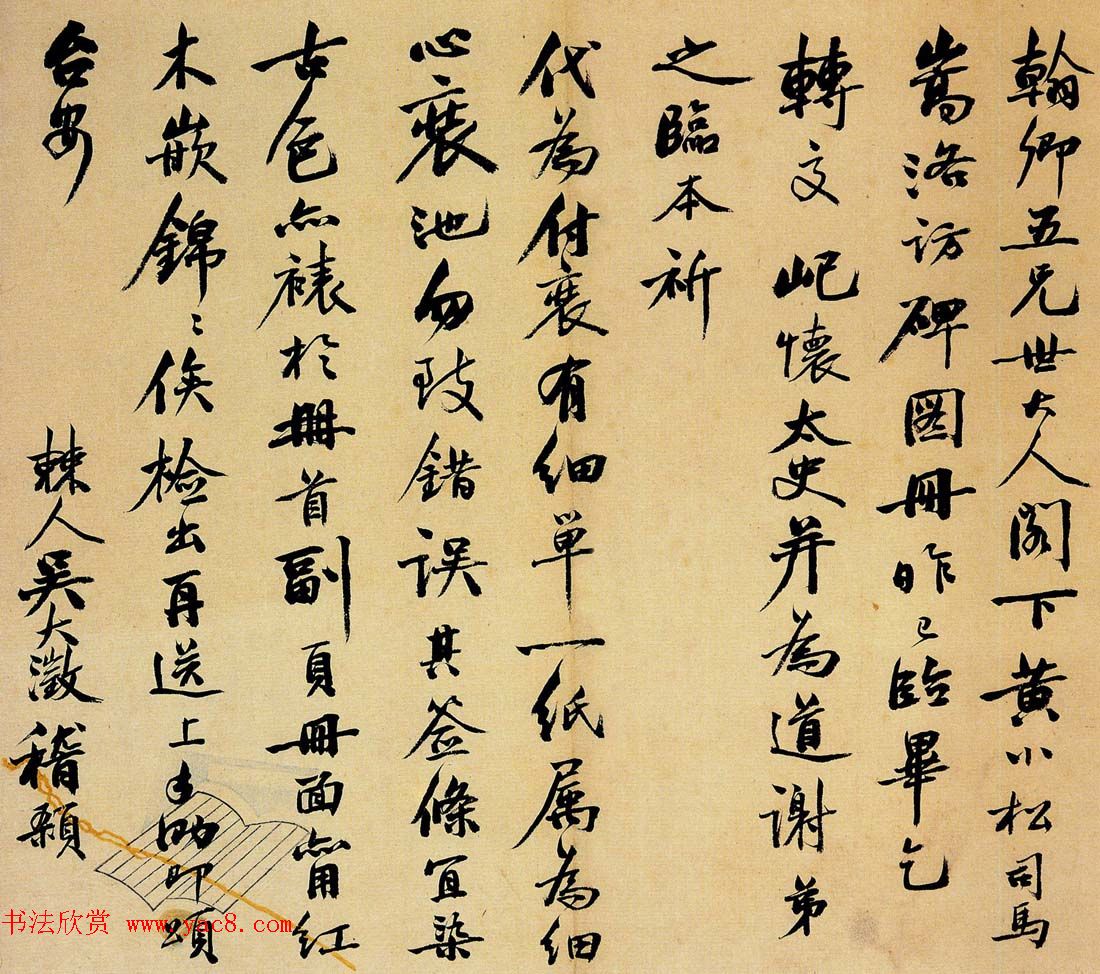 翰卿五兄世大人阁下黄小松司馬
嵩洛访碑图冊昨已临畢乞
轉交屺懷太史并為道谢弟
之臨本祈
代為付裱有细单一纸属為细
心裱池勿致错误其签條宜染
古色点裱於冊首副頁冊面用红
木嵌錦錦俟检出再送上手泐即頌
台安
棘人吴大澂稽顙
书法欣赏 www.yac8.com